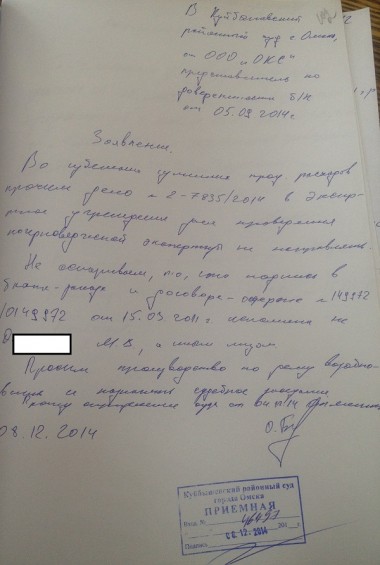 В Куйбышевский
районный суд г. Омска,
от ООО "ОКС"
представитель по
доверенности Б/Н
от 05.09.2014г
Заявление.
Во избежании судебных расходов
просим дело № 2-7835/2014 в экспер-
тное учреждение для проведения
почерковедческой экспертизы не направлять.
Не оспариваем, что подпись в
и договоре № 149972
/0149972 от 15.03.2011г исполнена не
М.В, а иным лицом.
Просим производство по делу возобно-
вить и назначить судебное заседание
08.12.2014
Куйбышевский районный суд
города Омска
ПРИЕМНАЯ
Вход. №
08.12.2014
Подпись